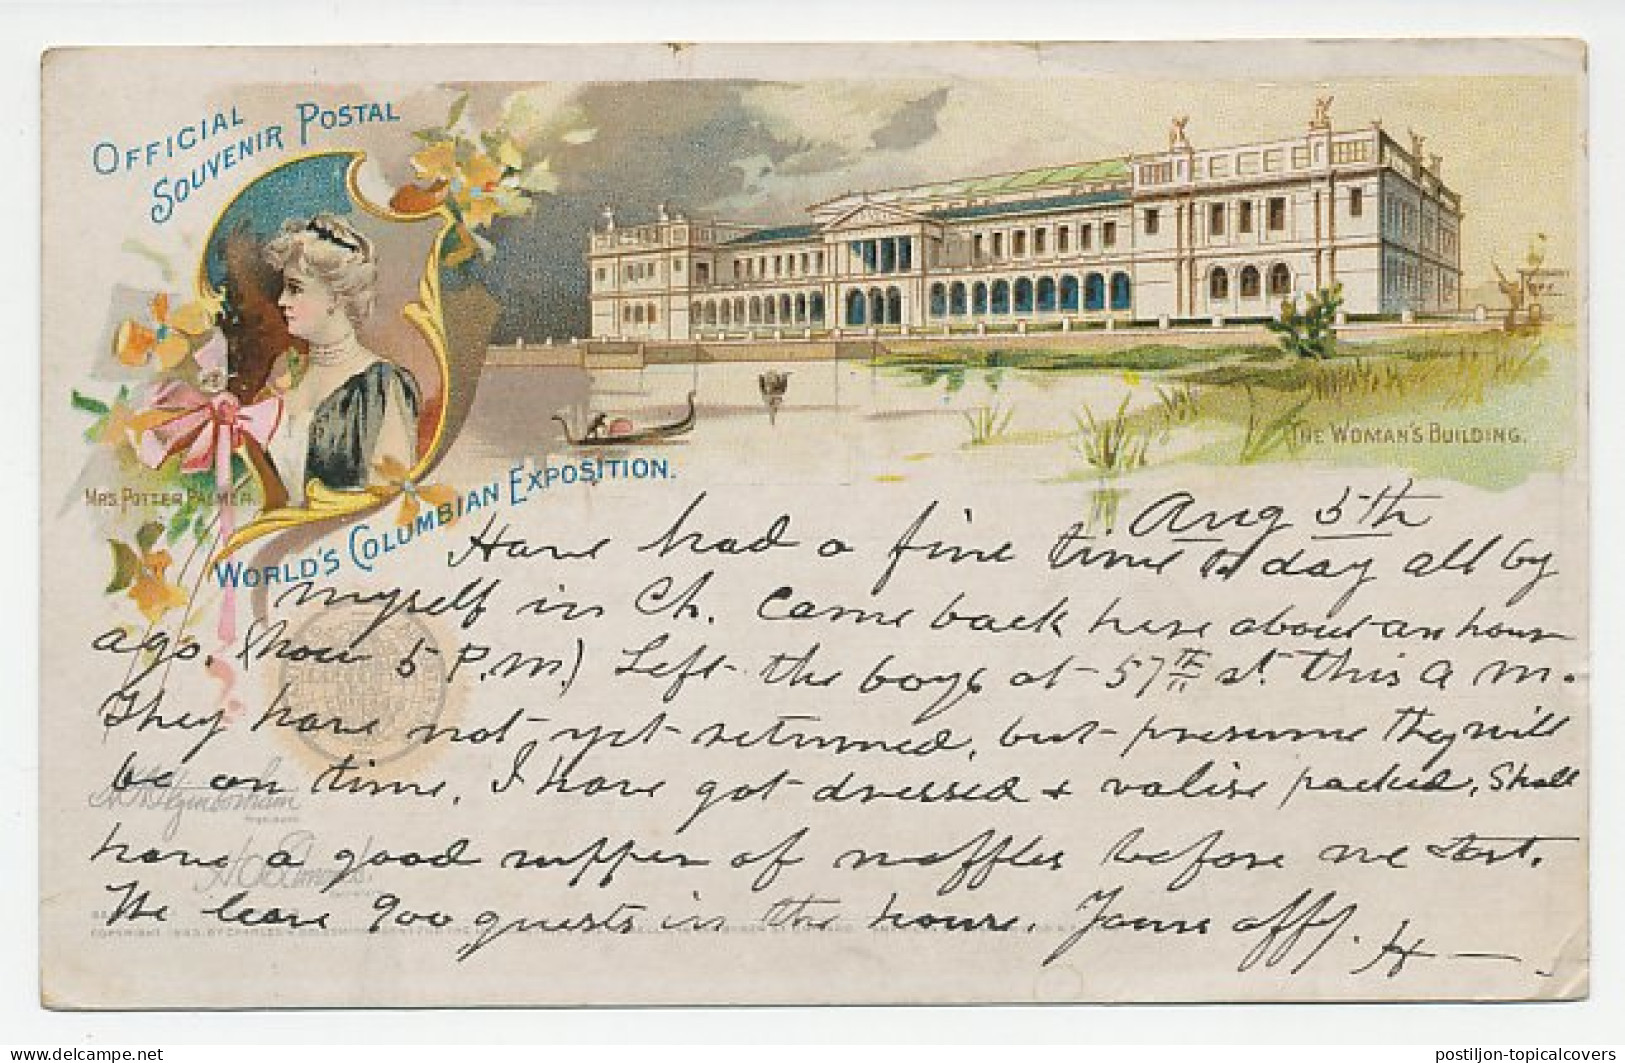 OFFICIAL
SOUVENIR POSTAL
MRS. POTTER PALMER.
WORLD'S COLUMBIAN EXPOSITION.
THE WOMAN'S BUILDING.
Aug 5th
Have had a fine time to day all by
myself in Ch. Came back here about an hour
ago. (now 5 P.M.) Left the boys at 57th st. this A M.
They have not yet returned, but presume they will
be on time. I have got dressed & valise packed. Shall
have a good supper of waffles before we start.
We leave 900 guests in the house. Yours aff. H
COPYRIGHT 1893, BY CHARLES W. GOLDSMITH
delcampe.net
postiljon-topicalcovers